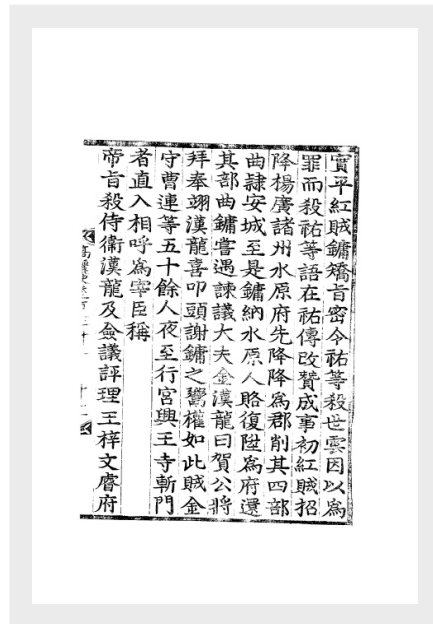 實平紅賊鏞矯旨密令祐等殺世雲因以爲
罪而殺祐等語在祐傳改贊成事初紅賊招
降楊廣諸州水原府先降降爲郡削其四部
曲隷安城至是鏞納水原人賂復陞爲府還
其部曲鏞嘗遇諫議大夫金漢龍曰賀公將
拜奉翊漢龍喜叩頭謝鏞之鬻權如此賊金
守曹連等五十餘人夜至行宮興王寺斬門
者直入相呼爲宰臣稱
帝旨殺侍衛漢龍及僉議評理王梓文睿府